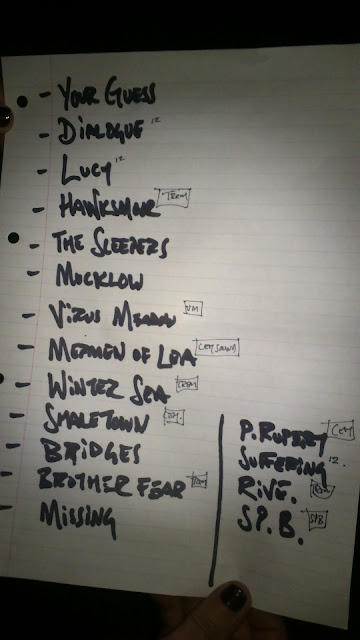 - Your Guess
- Dialogue 12
- Lucy 12
- Hawksmoor TREM
- The Sleepers
- Mucklow
- Virus Meadow VM
- Mermen of Lea CRY SOUND
- Winter Sea TREM
- Smaletown
- Bridges
- Brother Fear TREM
Missing
P. Rupert
Suffering 12.
Rive. TREM
SP. B. SPB